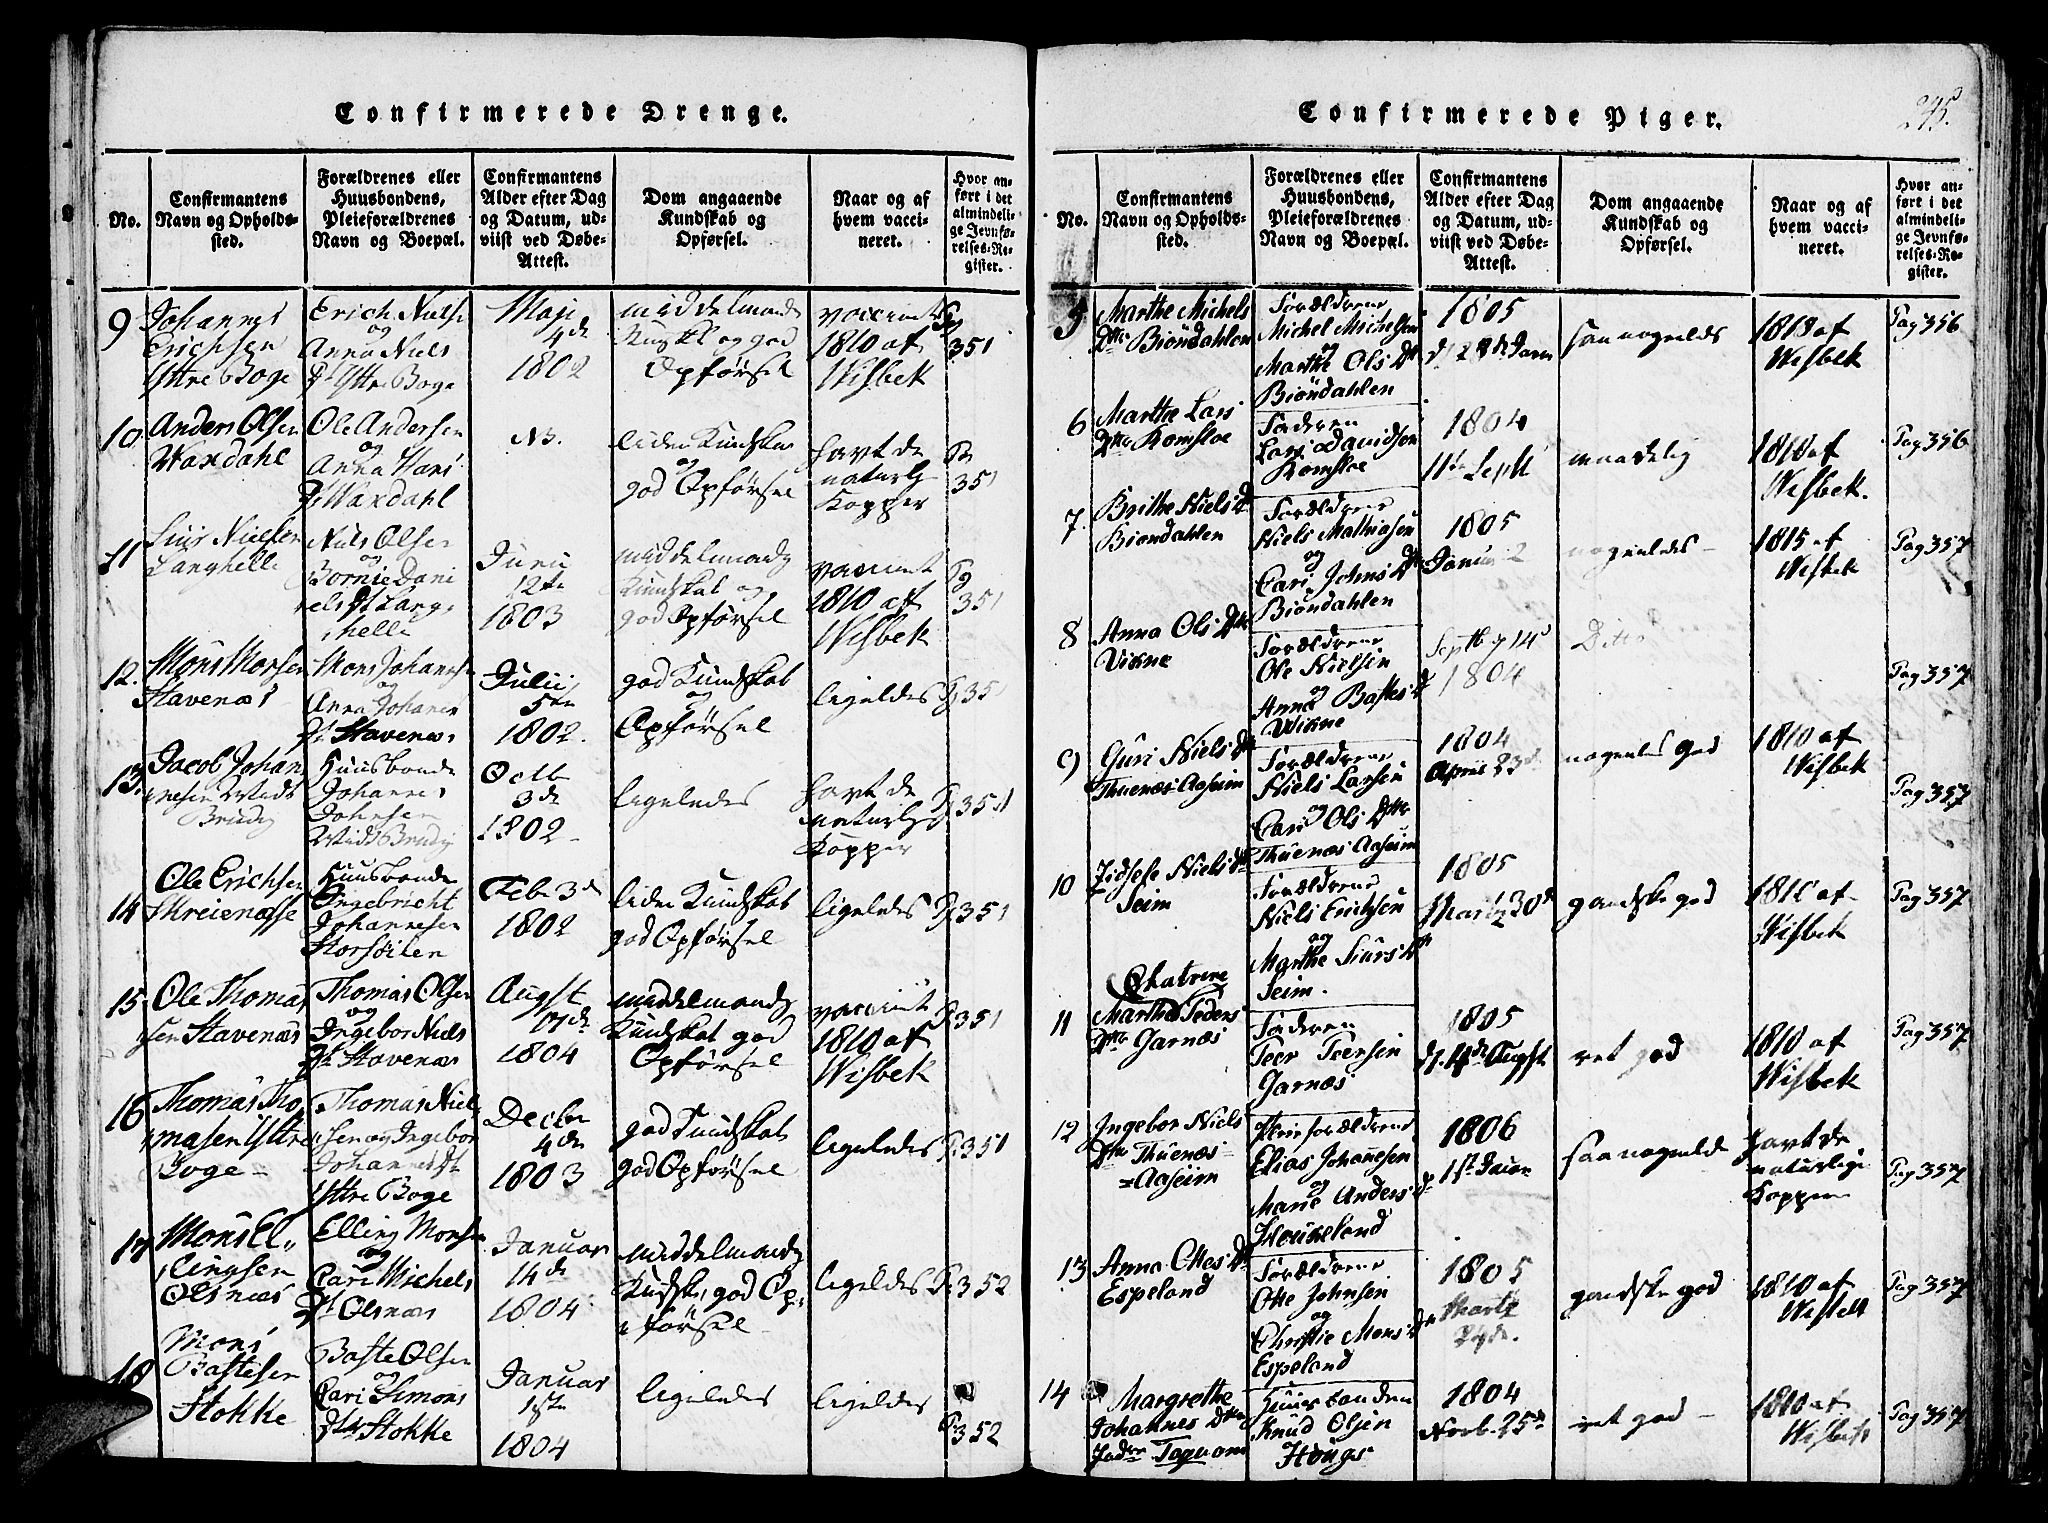 Confirmerede Drenge.
No.
Confirmantens
Navn og Opholds-
sted.
Forældrenes eller
Huusbondens,
Pleieforældrenes
Navn og Boepæl.
Confirmantens
Alder efter Dag
og Datum, ud-
viist ved Døbe-
Attest.
Dom angaaende
Kundskab og
Opførsel.
Naar og af
hvem vacci-
neret.
Hvor an-
ført i det
almindeli-
ge Jevnfø-
relses-Re-
gister.
9
Johannes
Erichsen
Yttre Boge
Erich Niels
og
Anna Niels
Dt Yttre Boge
Maji
4de
1802
middelmaade
og god
Opførsel
vaccinet
1810 af
Wisbek
351
10
Anders Olsen
Waxdahl
Ole Andersen
og
Anna Hans
Dt Waxdahl
liden Kundskab
og
god Opførsel
havt de
naturlg
Kopper
351
11
Siur Nielsen
Langhelle
Niels Olsen
og
Dani
els Dt Lang,
helle
Juni
12te
1803
middelmaadg
Kundskab og
god Opførsel
vaccinet
1810 af
Wisbek
Pg
351
12.
Mons Monsen
Stavenæs
Mons Johannesen
og
Anna Johannes
Dt Stavenæs
Julii
5te
1802.
god Kundskab
og
Opførsel
ligeledes
Pg 351
13.
Jacob Johan
nesen Widt
Brudvig
Huusbonde
Johannes
Johnsen
Widt Brudvig
Octb
3de
1802
ligeledes
havt de
naturlge
Kopper
P 351
14
Ole Erichsen
Skreienesse
Huusbonde
Ingebricht
Johannesen
Storsöiten
Feb 3de
1802
liden Kundskab
god Opførsel
ligeledes
P 351
15
Ole Thomas,
sen Stavenæs
Thomas Olsen
og
Ingebor Niels
Dt Stavenæs
Augst
17de
1804
middelmaadg
Kundskab god
Opførsel
vaccinet
1810 af
Wisbek
P 351
16
Thomas Tho
masen Yttre
Boge
Thomas Niel,
sen og Ingebor
Johannes Dt
Yttre Boge
Decbr
4de
1803
god Kundskab
god Opførsel
ligeledes
P 351
17
Mons El,,
lingsen
Olsnæs
Elling Monsen
og
Cari Michels
Dt Olsnæs
Januar
14de
1804
middelmaadg
Kundsk, god Op,
førsel
ligeledes
P 352
18
Mons
Bastesen
Stokke
Baste Olsen
og
Cari Simons
Dtr Stokke
Januar
1ste
1804
ligeledes
ligeledes
P 352
Confirmerede Piger.
245.
No.
Confirmantens
Navn og Opholds-
sted.
Forældrenes eller
Huusbondens,
Pleieforældrenes
Navn og Boepæl.
Confirmantens
Alder efter Dag
og Datum, ud-
viist ved Døbe-
Attest.
Dom angaaende
Kundskab og
Opførsel.
Naar og af
hvem vacci-
neret.
Hvor an-
ført i det
almindeli-
ge Jevnfø-
relses-Re-
gister.
5
Marthe Michels
Dtr Biöndahlen
Forældrene
Michel Michelsen
og
Marthe Ols Dt
Biöndahlen
1805
d. 28de Janu
saa nogenleds
1818 af
Wisbek
Pag 356
6
Marthe Lars
Dtr Romsloe
Faderen
Lars Davidsen
Romsloe
1804
11te Sept
maadelig
1810 af
Wisbek.
Pag 356
7.
Brithe Niels Dt
Biöndahlen
Forældrene
Niels Mathiasen
og
Cari Johns Dtr
Biöndahlen
1805
Januar 2
nogenledes
1815 af
Wisbek
Pag 357
8
Anna Ols Dtr
Vikne
Forældrene
Ole Nielsen
og
Anna Bastes Dt
Wikne
Septb 14d
1804
Ditto
Pag 357
9
Guri Niels Dtr
Thuenæs Aaseim
Forældrene
Niels Larsen
og
Cari Ols Dtr
Thuenæs Aaseim
1804
April 23d
nogenles god
1810 af
Wisbek
Pag 357
10
Zidsele Niels Dtr
Seim
Forældrene
Niels Erichsen
og
Marthe Siurs Dtr
Seim.
1805
Marty 30de
gandske god
1810 af
Wisbek
Pag 357
11
Chatrine
Martha Peders
Dtr Garnæs
Faderen
Peer Peersen
Garnæs
1805
d. 4de Augst
ret god
1810 af
Wisbek
Pag 357
12
Ingebor Niels
Dtr Thuenæs
=Aaseim
Pleieforældrene
Elias Johannesen
og
Marie Anders Dtr
Houkeland
1806
1ste Januar
saa nogenlede
havt de
naturlige
Kopper
Pag 357
13
Anna Ottes Dtr
Espeland
Forældrene
Otte Johnsen
og
Christie Mons Dtr
Espeland
1805
Marty
gandske god
1810 af
Wisbek
Pag 357
14
Margrethe
Johannes Dtr
Huusbonden
Knud Olsen
Hougs
1804
Novb. 25de
ret god
1810 af
Wisbek
Pag 357